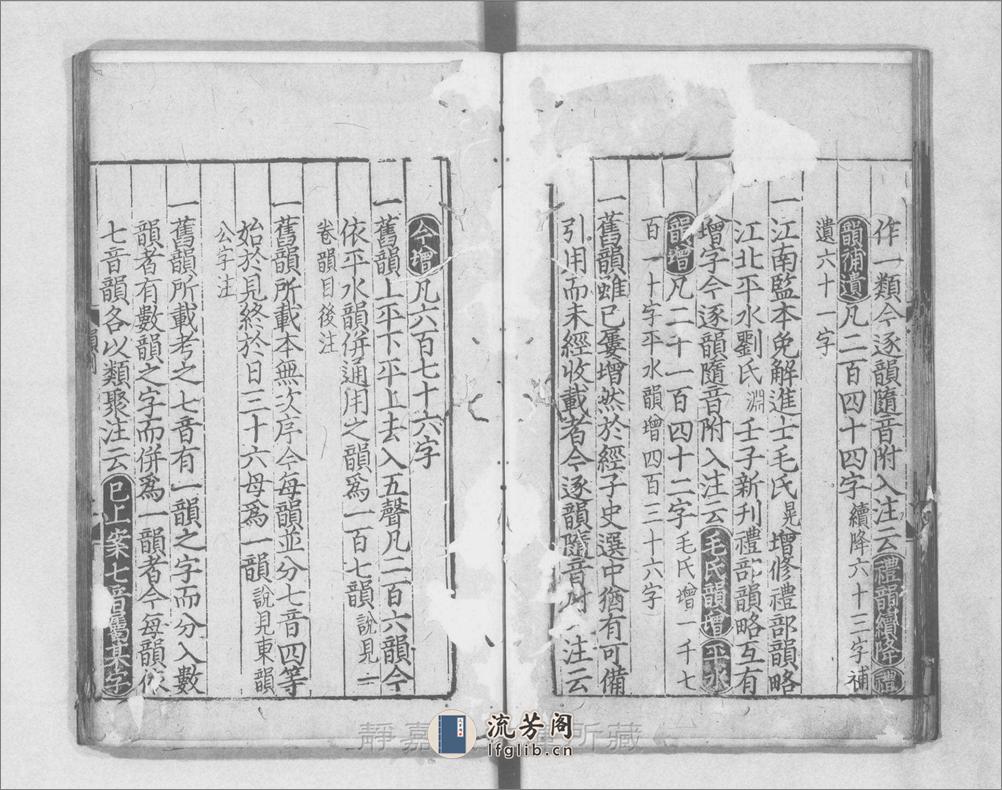 作一類今逐韻隨音附入注云禮韻續降禮
韻補遺凡二百四十四字續降六十三字補
遺六十一字
一江南監本免解進士毛氏晃增修禮部韻略
江北平水劉氏淵壬子新刊禮部韻略互有
增字今逐韻隨音附入注云毛氏韻增平水
韻增凡二千一百四十二字毛氏增一千七
百一十字平水韻增四百三十六字
一舊韻雖已屢增然於經子史選中猶有可備
引用而未經收載者今逐韻隨音附注云
今增凡六百七十六字
一舊韻上平下平上去入五聲凡二百六韻今
依平水韻併通用之韻爲一百七韻說見一
卷韻目後注
一舊韻所載本無次序今每韻並分七音四等
始於見終於日三十六母爲一韻說見東韻
公字注
一舊韻所載考之七音有一韻之字而分入數
韻者有數韻之字而併爲一韻者今每韻依
七音韻各以類聚注云已上案七音屬某字
靜嘉 所藏
流芳阁
lfglib.cn